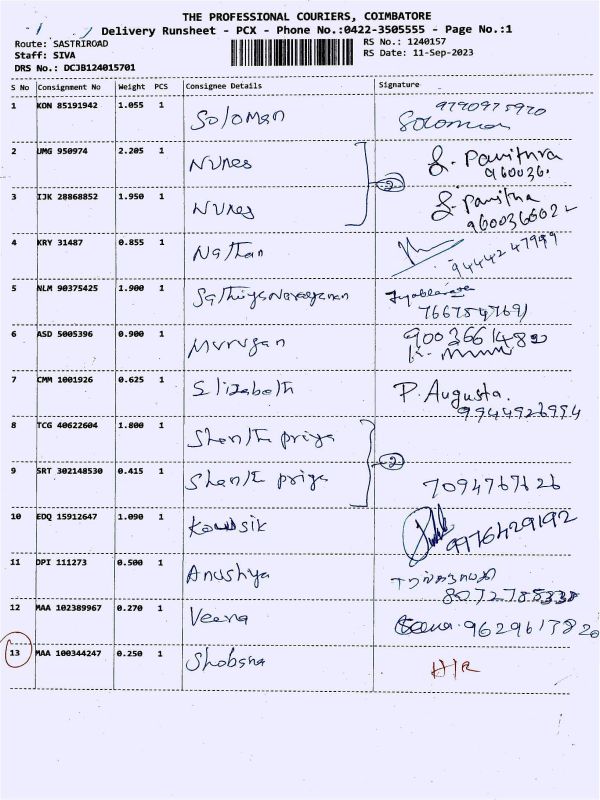 THE PROFESSIONAL COURIERS, COIMBATORE
Delivery Runsheet - PCX - Phone No.:0422-3505555 - Page No.:1
Route: SASTRIROAD
Staff: SIVA
DRS No.: DCJB124015701
RS No.: 1240157
RS Date: 11-Sep-2023
S No Consignment No Weight PCS Consignee Details Signature
1 KDN 85191942 1.055 1 Soloman 9790975970
Solomon
2 UMG 950974 2.205 1 Nunes S. Pavithra
960036
3 IJK 28868852 1.950 1 Nunes S. Pavitha
2
4 KRY 31487 0.855 1 Nathan 9444247999
5 NLM 90375425 1.900 1 Sathiya Narayanan
7667547691
6 ASD 5005396 0.900 1 Murugan
K.
7 CMM 1001926 0.625 1 Elizabeth P. Augusta.
9944926994
8 TCG 40622604 1.800 1 Shanthi priya
2
9 SRT 302148530 0.415 1 Shanthi priya 7094767626
10 EDQ 15912647 1.090 1 Kowsik 9976429192
11 DPI 111273 0.500 1 Anushya
12 MAA 102389967 0.270 1 Veena Veena. 9629617820
13 MAA 100344247 0.250 1 Shobana